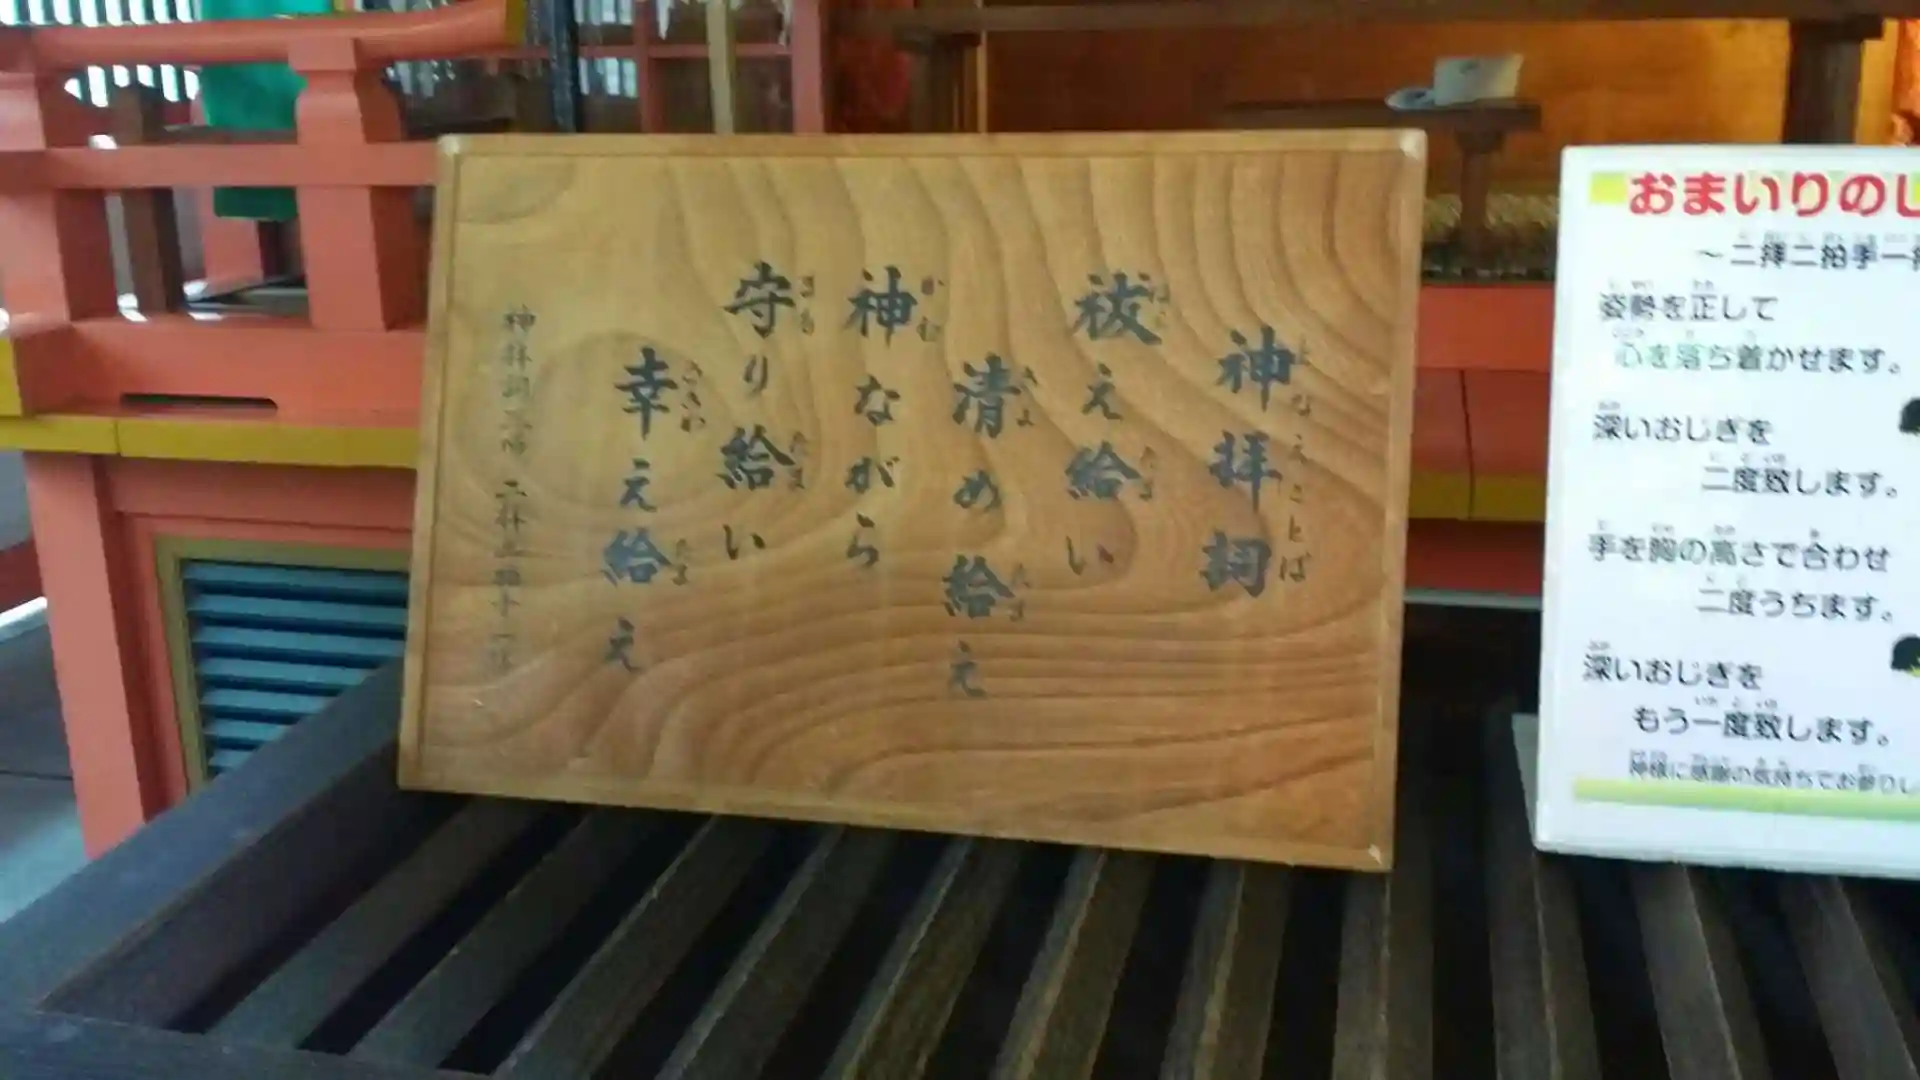 神拝詞
となえことば
祓え給い
はら たま
清め給え
きよ たま
神ながら
かむ
守り給い
まも たま
幸え給え
さきわ たま
神拝詞三唱 二拝二拍手一拝
おまいりのし
～二拝二拍手一拝
姿勢を正して
心を落ち着かせます。
深いおじぎを
二度致します。
手を胸の高さで合わせ
二度うちます。
深いおじぎを
もう一度致します。
神様に感謝の気持ちでお参りし